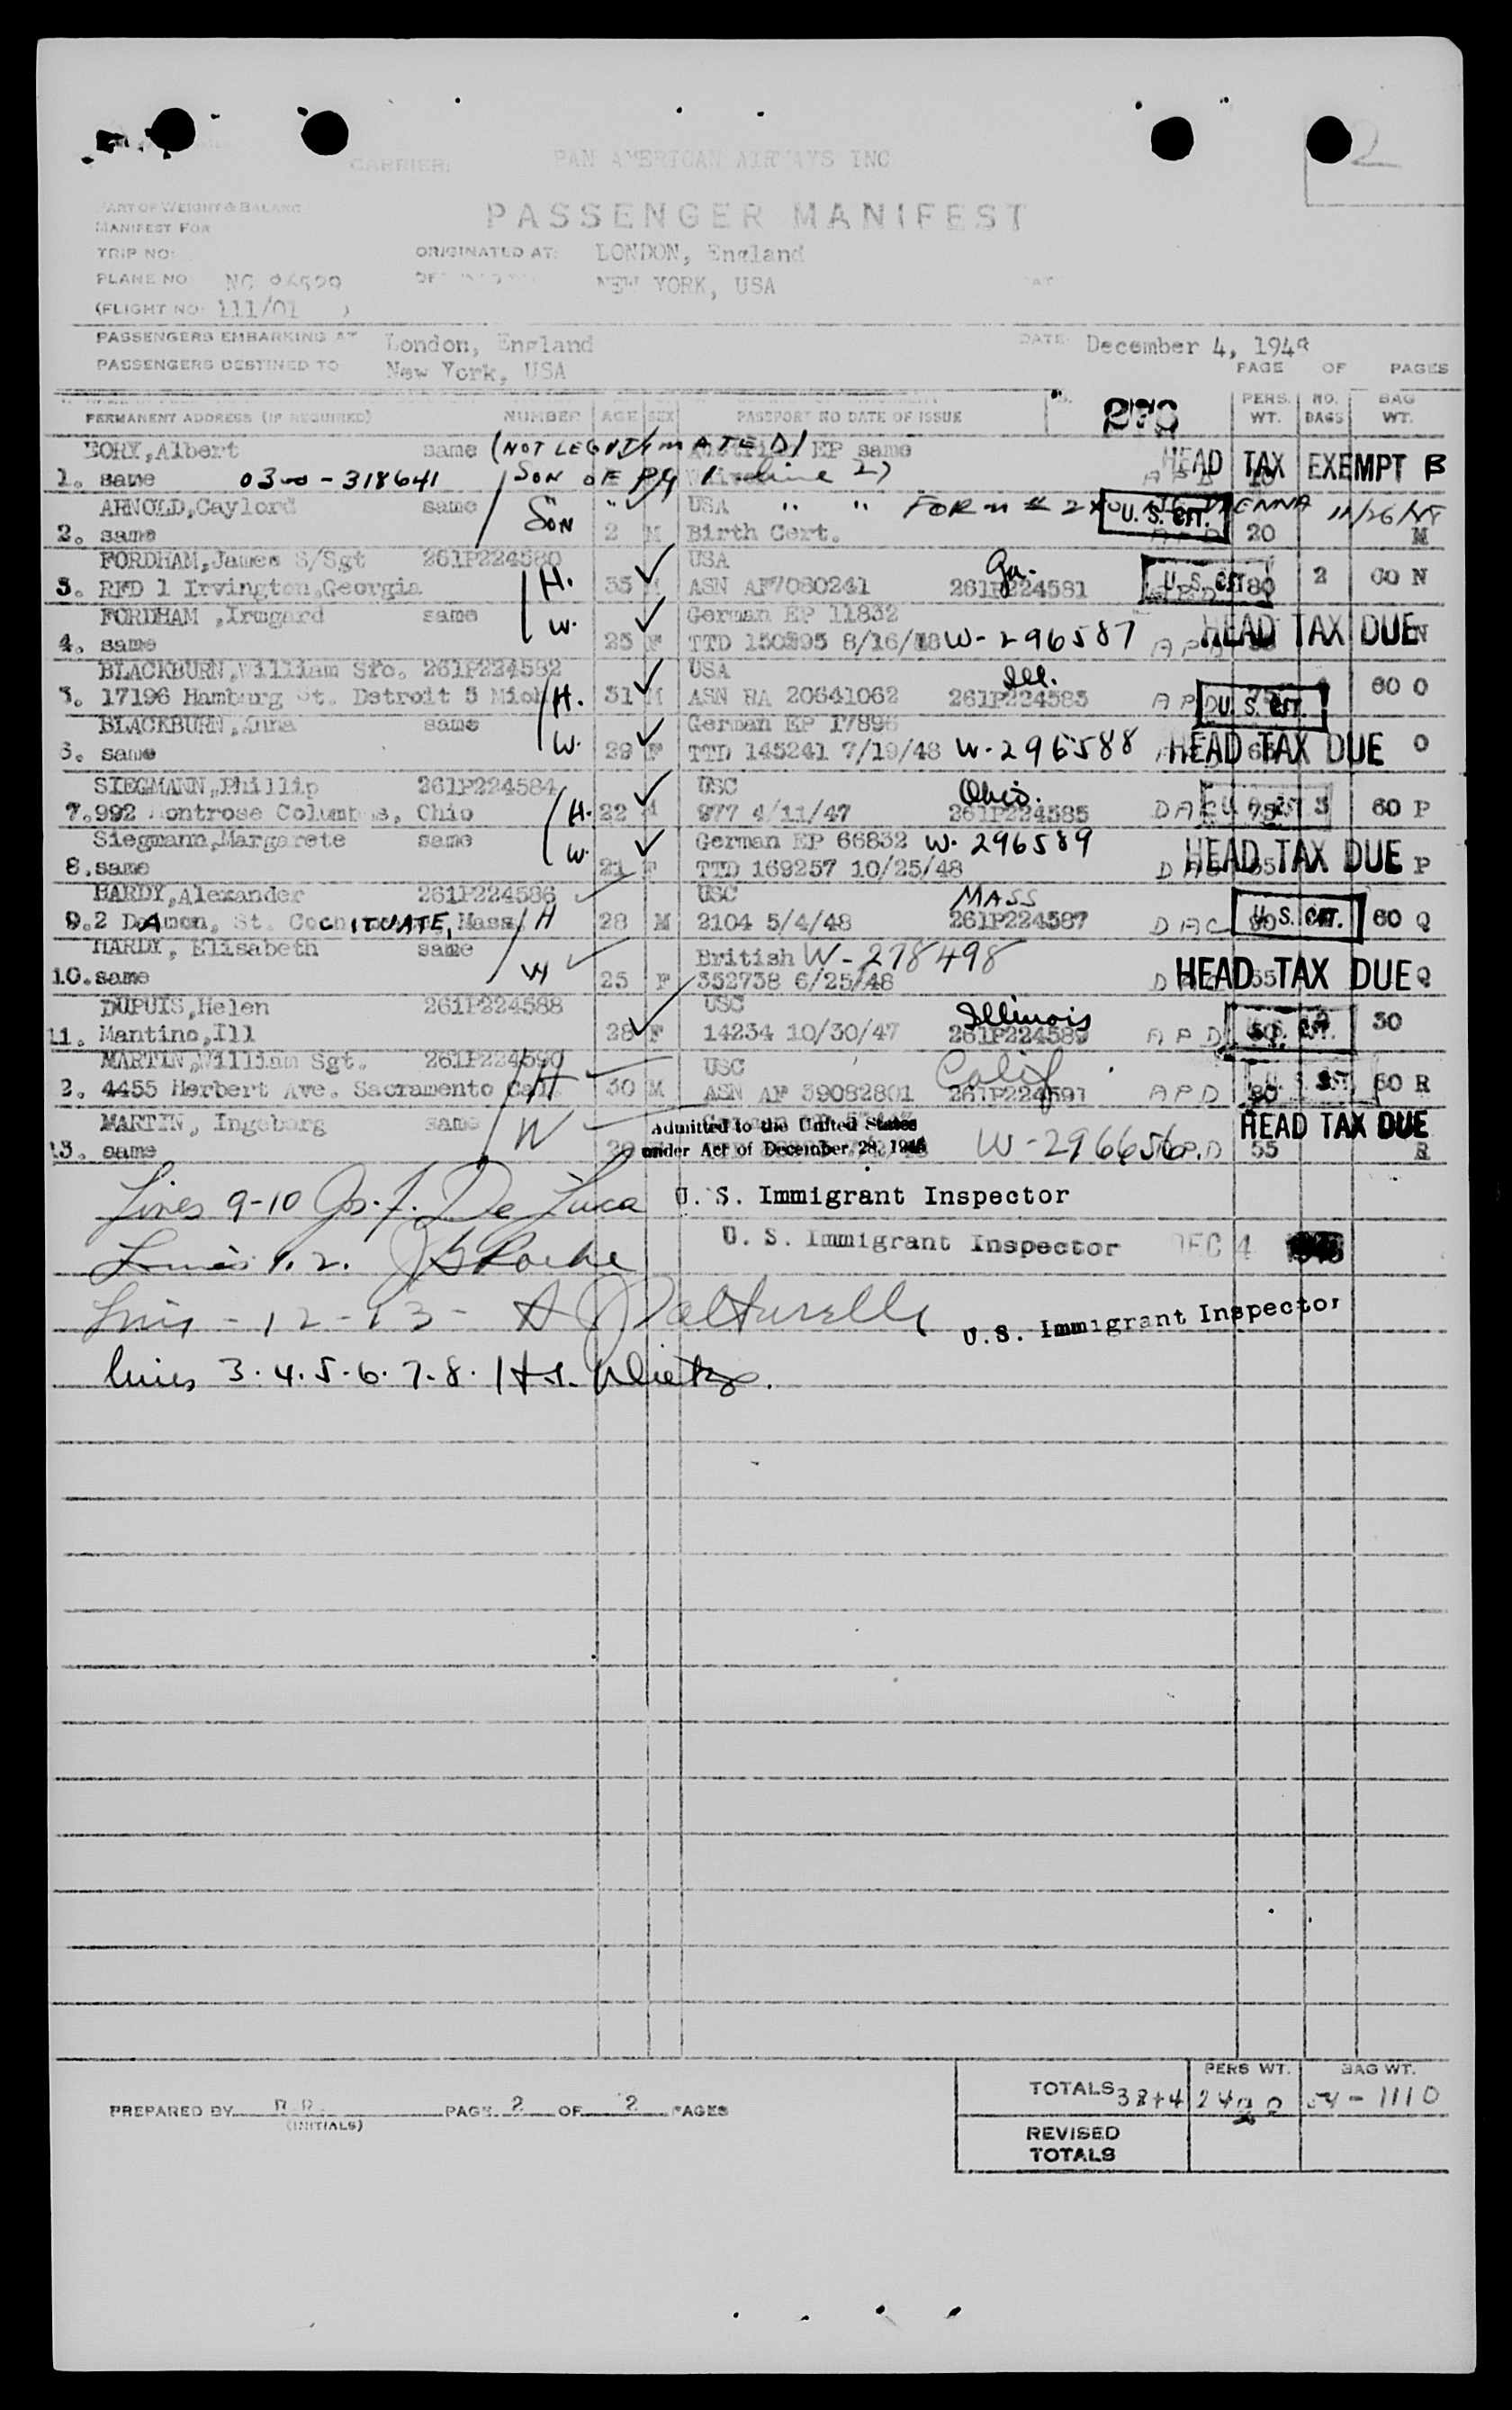 2
CARRIER: PAN AMERICAN AIRWAYS INC
PART OF WEIGHT & BALANC
MANIFEST FOR
PASSENGER MANIFEST
TRIP NO: ORIGINATED AT: LONDON, England
PLANE NO NC NEW YORK, USA
(FLIGHT NO: 111/01 )
PASSENGERS EMBARKING AT London, England DATE: December 4, 194
PASSENGERS DESTINED TO New York, USA PAGE OF PAGES
PERMANENT ADDRESS (IF REQUIRED) NUMBER AGE SEX PASSPORT NO DATE OF ISSUE PERS. WT. NO. BAGS BAG WT.
BORY, Albert same (NOT LEGITIMATED) EP same
1. same 0300-318641 SON OF line 2) HEAD TAX EXEMPT B
ARNOLD, Gaylord same SON USA " " FORM VIENNA 11/26/48
2. same 2 M Birth Cert. U. S. CIT. 20 M
FORDHAM, James S/Sgt 261P224580 H. USA Ga.
3. RFD 1 Irvington, Georgia 35 M ASN AF7080241 261P224581 U. S. CIT. 80 2 60 N
FORDHAM ,Irmgard same W. German EP 11832
4. same 25 F TTD 8/16/48 W-296587 APD HEAD TAX DUE N
BLACKBURN, William Sfc. 261P224582 USA Ill.
5. 17196 Hamburg St. Detroit 5 Mich H. 31 M ASN RA 20641062 261P224583 APD U. S. CIT. 60 O
BLACKBURN, Anna same German EP 17898
6. same W. 29 F TTD 145241 7/19/48 W-296588 HEAD TAX DUE O
SIEGMANN, Phillip 261P224584 USC Ohio.
7. 992 Montrose Columbus, Ohio H. 22 M 977 4/11/47 261P224585 DAC 75 60 P
Siegmann, Margarete same German EP 66832 W-296589
8. same W. 21 F TTD 169257 10/25/48 HEAD TAX DUE P
HARDY, Alexander 261P224586 USC MASS
9. 2 Damon, St. COCHITUATE, Mass H 28 M 2104 5/4/48 261P224587 DAC U. S. CIT. 60 Q
HARDY, Elisabeth same British W-278498
10. same W 25 F 352738 6/25/48 HEAD TAX DUE Q
DUPUIS, Helen 261P224588 USC Illinois
11. Mantino, Ill 28 F 14234 10/30/47 261P224589 APD 30
MARTIN, William Sgt. 261P224590 USC Calif
2. 4455 Herbert Ave. Sacramento Cal H 30 M ASN AF 39082801 261P224591 APD 80 60 R
MARTIN, Ingeborg same W Admitted to the United States HEAD TAX DUE
13. same 29 under Act of December 28, 1945 W-296656 APD 55 R
Lines 9-10 Jos. F. De Luca U. S. Immigrant Inspector
Lines 1.2. U. S. Immigrant Inspector DEC 4
Lines - 12-13- U.S. Immigrant Inspector
lines 3.4.5.6.7.8.
PREPARED BY (INITIALS) PAGE 2 OF 2 PAGES
PERS WT. BAG WT.
TOTALS 38+4 54-1110
REVISED TOTALS